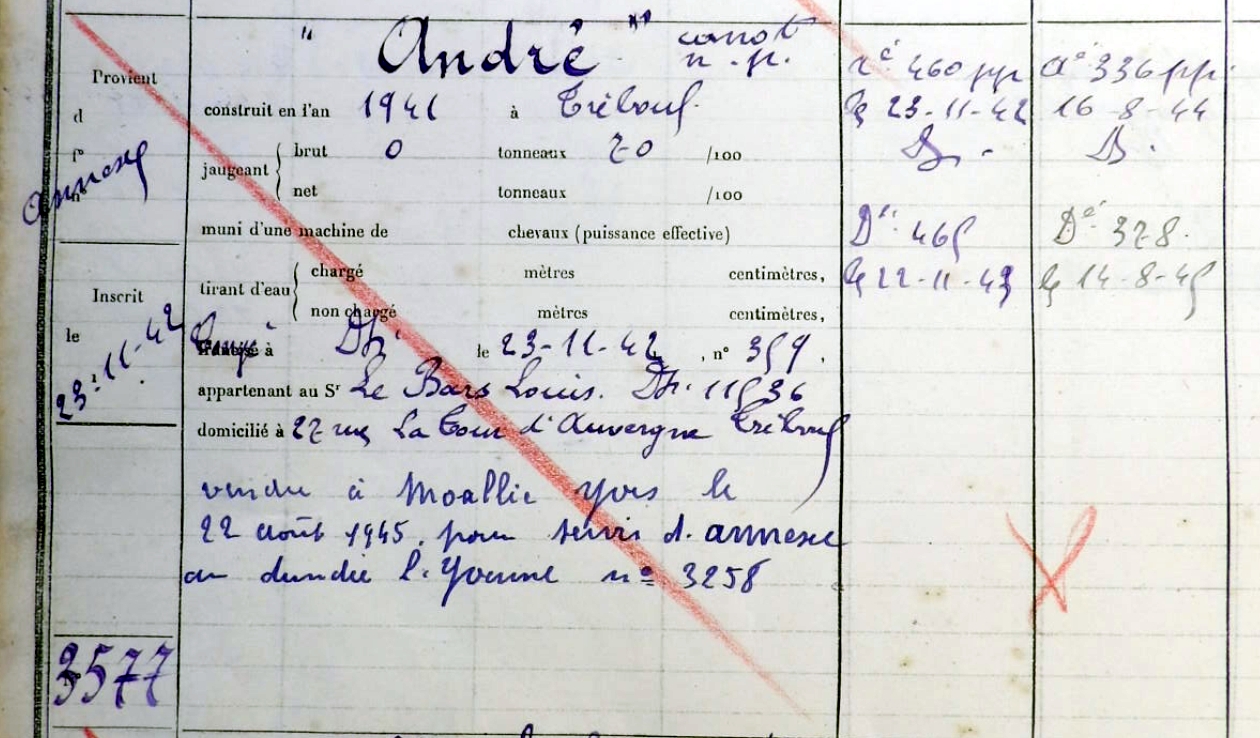 Provient
d
f°
n°
Annexe
Inscrit
le
23-11-42
3577
" André " canot
n. p.
construit en l'an 1941 à Tréboul
jaugeant { brut 0 tonneaux 70 /100
net tonneaux /100
muni d'une machine de chevaux (puissance effective)
tirant d'eau { chargé mètres centimètres,
non chargé mètres centimètres,
à Dz le 23-11-42, n° 359,
appartenant au Sr Le Bars Louis. Dz. 11536
domicilié à 27 rue La Tour d'Auvergne Tréboul
vendu à Moallic Yves le
22 août 1945. pour servir d'annexe
au dundée l'Yvonne n° 3258
Aé 460 pp
le 23-11-42
Dz.
Dé 465
le 22-11-43
Aé 336 pp.
16-8-44
Dz.
Dé 378.
le 14-8-45